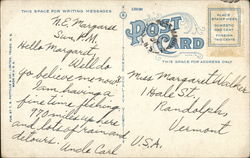 THIS SPACE FOR WRITING MESSAGES
N.E. Margaree
Sun. P.M.
Hello Margaret,
Well do
you believe me now?
Am having a
fine time fishing.
970 miles up here
and lots of rain and
detours. Uncle Carl
POST
CARD
THIS SPACE FOR ADDRESS ONLY
PLACE
STAMP HERE
DOMESTIC
ONE CENT
FOREIGN
TWO CENTS
Miss Margaret Walker
1 Hale St.
Randolph
Vermont
U.S.A.